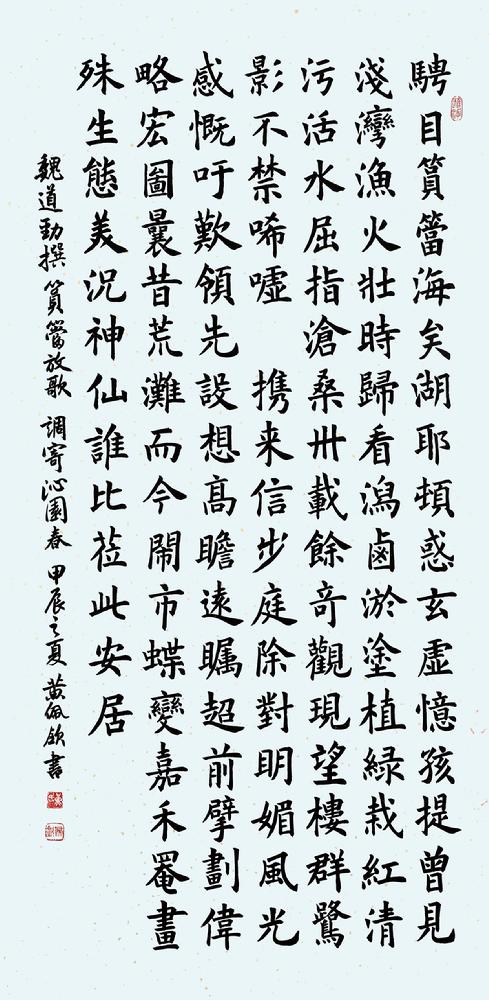 騁目篔簹海矣湖耶頓惑玄虛憶孩提曾見
淺灣漁火壯時歸看潟鹵淤塗植緑栽紅清
污活水屈指滄桑卅載餘奇觀現望樓群鷺
影不禁唏嘘 携来信步庭除對明媚風光
感慨吁歎領先設想高瞻遠矚超前擘劃偉
略宏圖曩昔荒灘而今鬧市蝶變嘉禾罨畫
殊生態美况神仙誰比莅此安居
魏道勁撰篔簹放歌 調寄沁園春 甲辰之夏 黄佩欽書